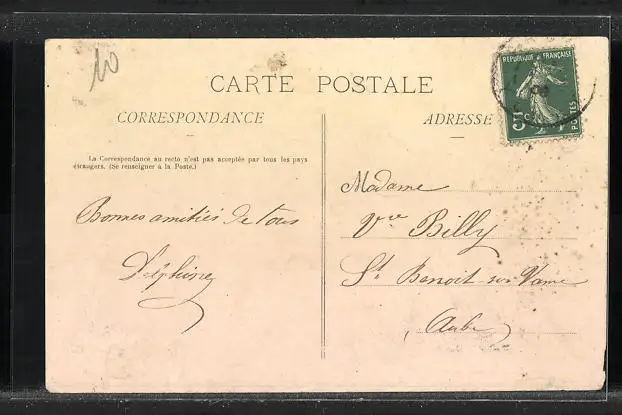 10
CARTE POSTALE
CORRESPONDANCE
ADRESSE
REPUBLIQUE FRANÇAISE
5 c
POSTES
La Correspondance au recto n'est pas acceptée par tous les pays
étrangers. (Se renseigner à la Poste.)
Bonnes amitiés de tous
Delphine
Madame
Vve Billy
St Benoit sur Vanne
(Aube)